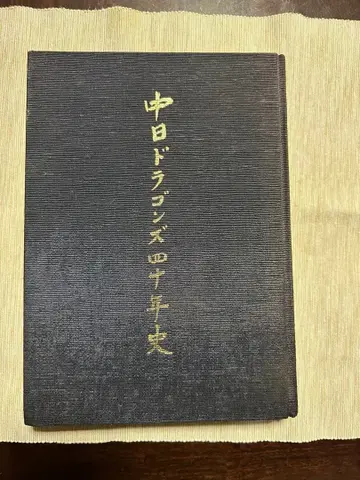 中日ドラゴンズ四十年史